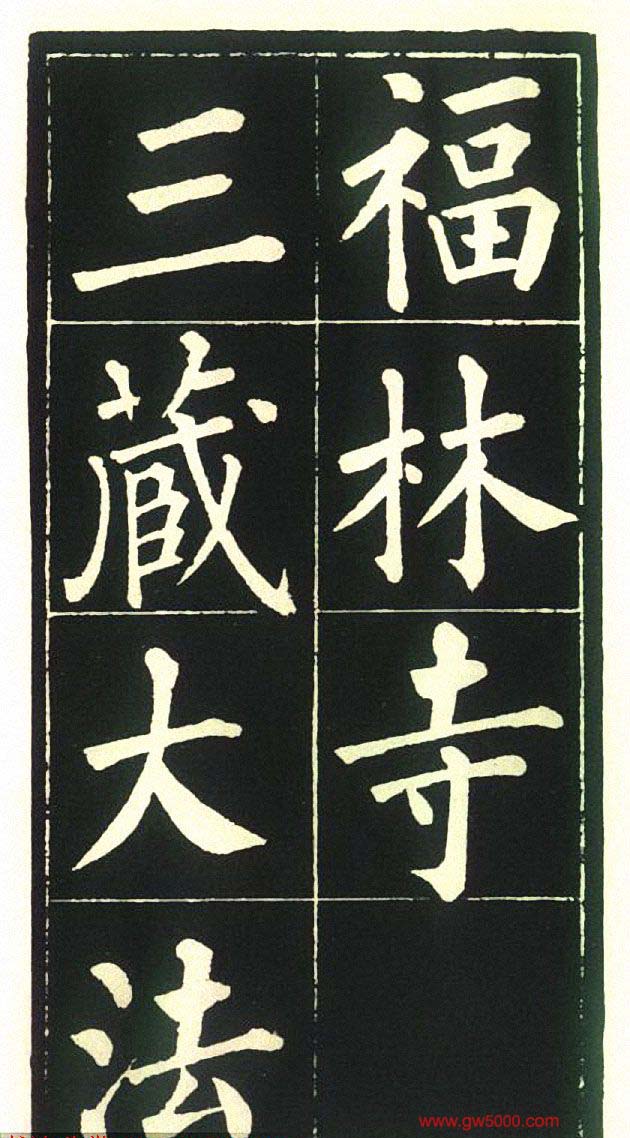 福林寺
三蔵大法
www.gw5000.com